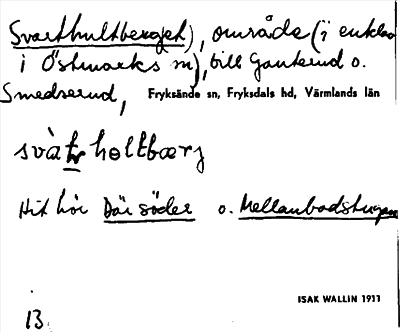 Svarthultberget), område (i enklav
i Östmarks sn), till Gunterud o.
Smedserud, Fryksände sn, Fryksdals hd, Värmlands län
Hit hör Där söder o. Mellanbadstugan
ISAK WALLIN 1911
13.